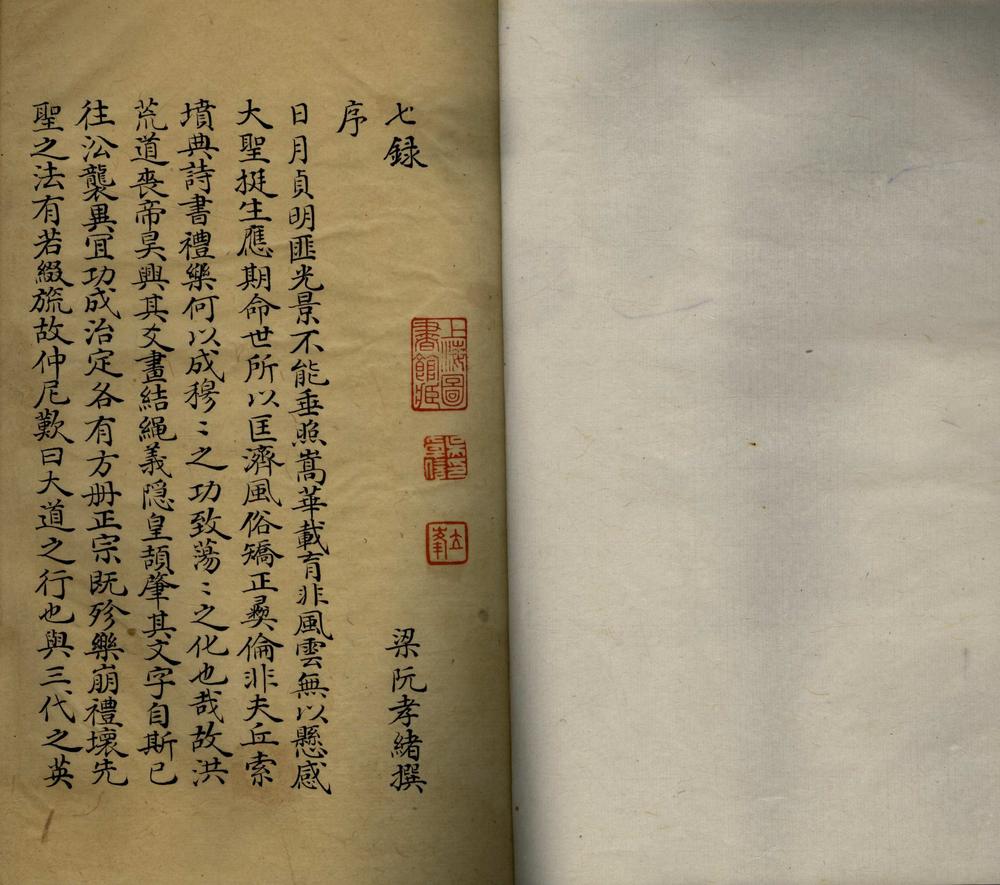 七録
梁阮孝緒撰
上海圖書館藏
序
日月貞明匪光景不能垂照嵩華載育非風雲無以懸感
大聖挺生應期命世所以匡濟風俗矯正彛倫非夫丘索
墳典詩書禮樂何以成穆〻之功致蕩〻之化也哉故洪
荒道喪帝昊興其爻畫結繩義隐皇頡肇其文字自斯已
往沿襲異冝功成治定各有方册正宗既殄樂崩禮壞先
聖之法有若綴旒故仲尼歎曰大道之行也與三代之英